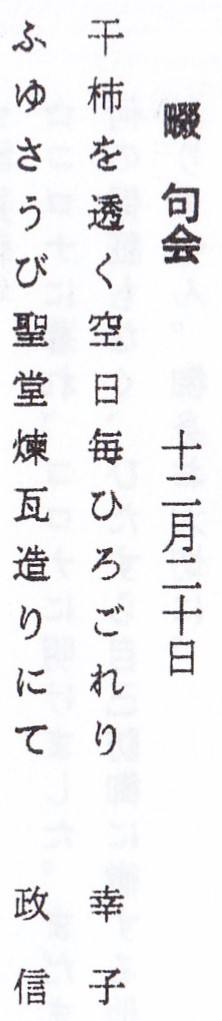 畷 句会 十二月二十日
干柿を透く空日毎ひろごれり 幸子
ふゆさうび聖堂煉瓦造りにて 政信